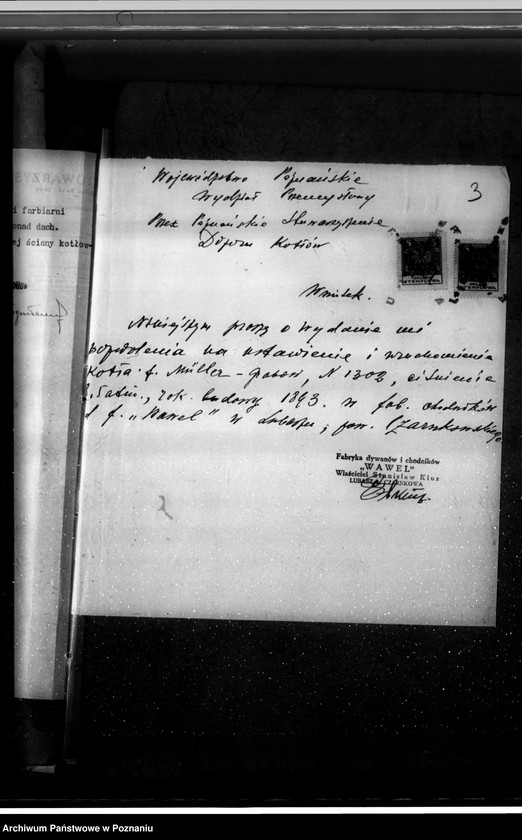 i farbiarni
onad dach.
ej ściany kotłow-
3
Województwo Poznańskie
Wydział Przemysłowy
Przez Poznańskie Stowarzyszenie
Dozoru Kotłów
Wniosek.
Niniejszym proszę o wydanie mi
pozwolenia na ustawienie i uruchomienie
kotła f. Müller - N 1302, ciśnienie
atm., rok budowy 1893. w fab. chodników
f. „Wawel" w Lubaszu, pow. Czarnkowskiego
Fabryka dywanów i chodników
„WAWEL"
Właściciel Stanisław Kluz
LUBASZ CZARNKOWA
Archiwum Państwowe w Poznaniu